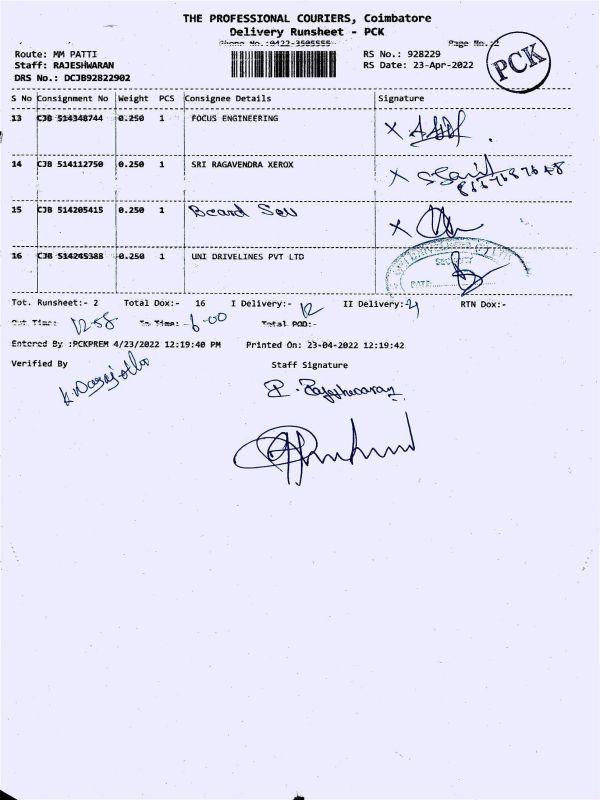 THE PROFESSIONAL COURIERS, Coimbatore
Delivery Runsheet - PCK
Phone No.:0422-3505555
Page No.:2
Route: MM PATTI
RS No.: 928229
PCK
Staff: RAJESHWARAN
RS Date: 23-Apr-2022
DRS No.: DCJB92822902
S No Consignment No Weight PCS Consignee Details Signature
13 CJB 514348744 0.250 1 FOCUS ENGINEERING X
14 CJB 514112750 0.250 1 SRI RAGAVENDRA XEROX X
15 CJB 514205415 0.250 1 X
16 CJB 514245388 0.250 1 UNI DRIVELINES PVT LTD
SECURITY
DATE
Tot. Runsheet:- 2 Total Dox:- 16 I Delivery:- 12 II Delivery:- RTN Dox:-
Out Time: 12-58 In Time:- 6-00 Total POD:-
Entered By :PCKPREM 4/23/2022 12:19:40 PM Printed On: 23-04-2022 12:19:42
Verified By Staff Signature